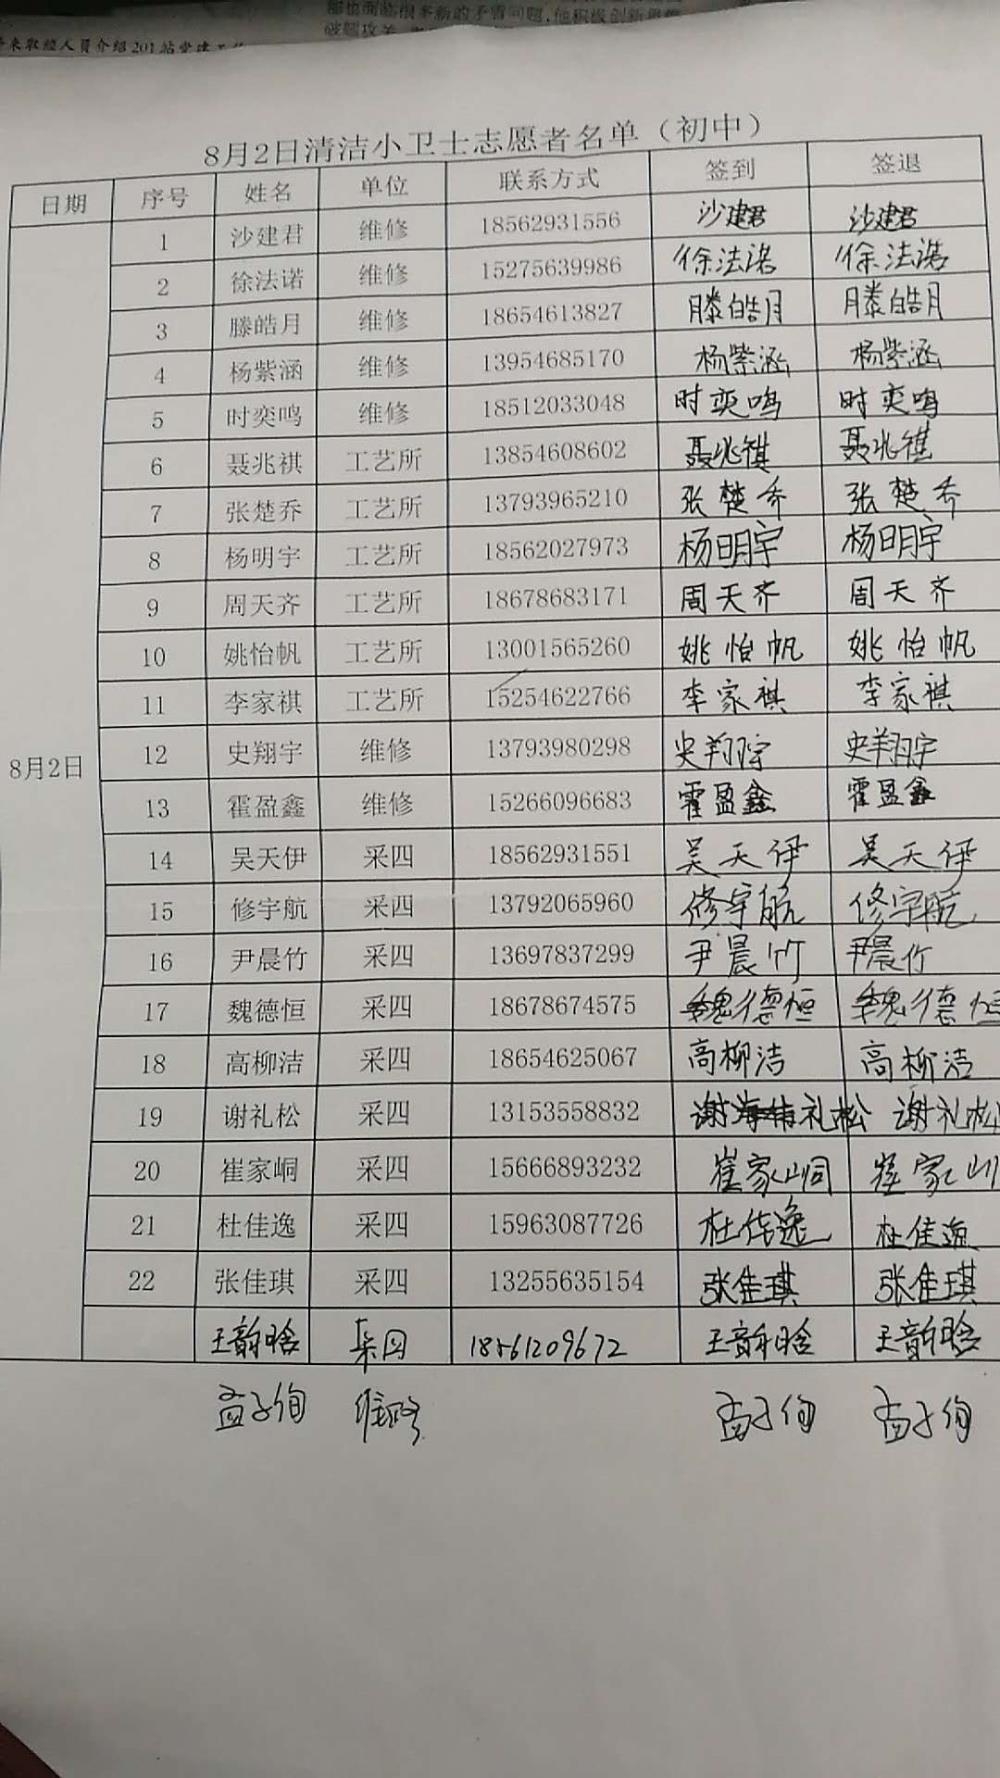 8月2日清洁小卫士志愿者名单（初中）
日期 序号 姓名 单位 联系方式 签到 签退
8月2日
1 沙建君 维修 18562931556 沙建君 沙建君
2 徐法诺 维修 15275639986 徐法诺 徐法诺
3 滕皓月 维修 18654613827 滕皓月 滕皓月
4 杨紫涵 维修 13954685170 杨紫涵 杨紫涵
5 时奕鸣 维修 18512033048 时奕鸣 时奕鸣
6 聂兆祺 工艺所 13854608602 聂兆祺 聂兆祺
7 张楚乔 工艺所 13793965210 张楚乔 张楚乔
8 杨明宇 工艺所 18562027973 杨明宇 杨明宇
9 周天齐 工艺所 18678683171 周天齐 周天齐
10 姚怡帆 工艺所 13001565260 姚怡帆 姚怡帆
11 李家祺 工艺所 15254622766 李家祺 李家祺
12 史翔宇 维修 13793980298 史翔宇 史翔宇
13 霍盈鑫 维修 15266096683 霍盈鑫 霍盈鑫
14 吴天伊 采四 18562931551 吴天伊 吴天伊
15 修宇航 采四 13792065960 修宇航 修宇航
16 尹晨竹 采四 13697837299 尹晨竹 尹晨竹
17 魏德恒 采四 18678674575 魏德恒 魏德恒
18 高柳洁 采四 18654625067 高柳洁 高柳洁
19 谢礼松 采四 13153558832 谢礼松 谢礼松
20 崔家峒 采四 15666893232 崔家峒 崔家
21 杜佳逸 采四 15963087726 杜佳逸 杜佳逸
22 张佳琪 采四 13255635154 张佳琪 张佳琪
王韵晗 采四 18561209672 王韵晗 王韵晗
孟子绚 维修 孟子绚 孟子绚